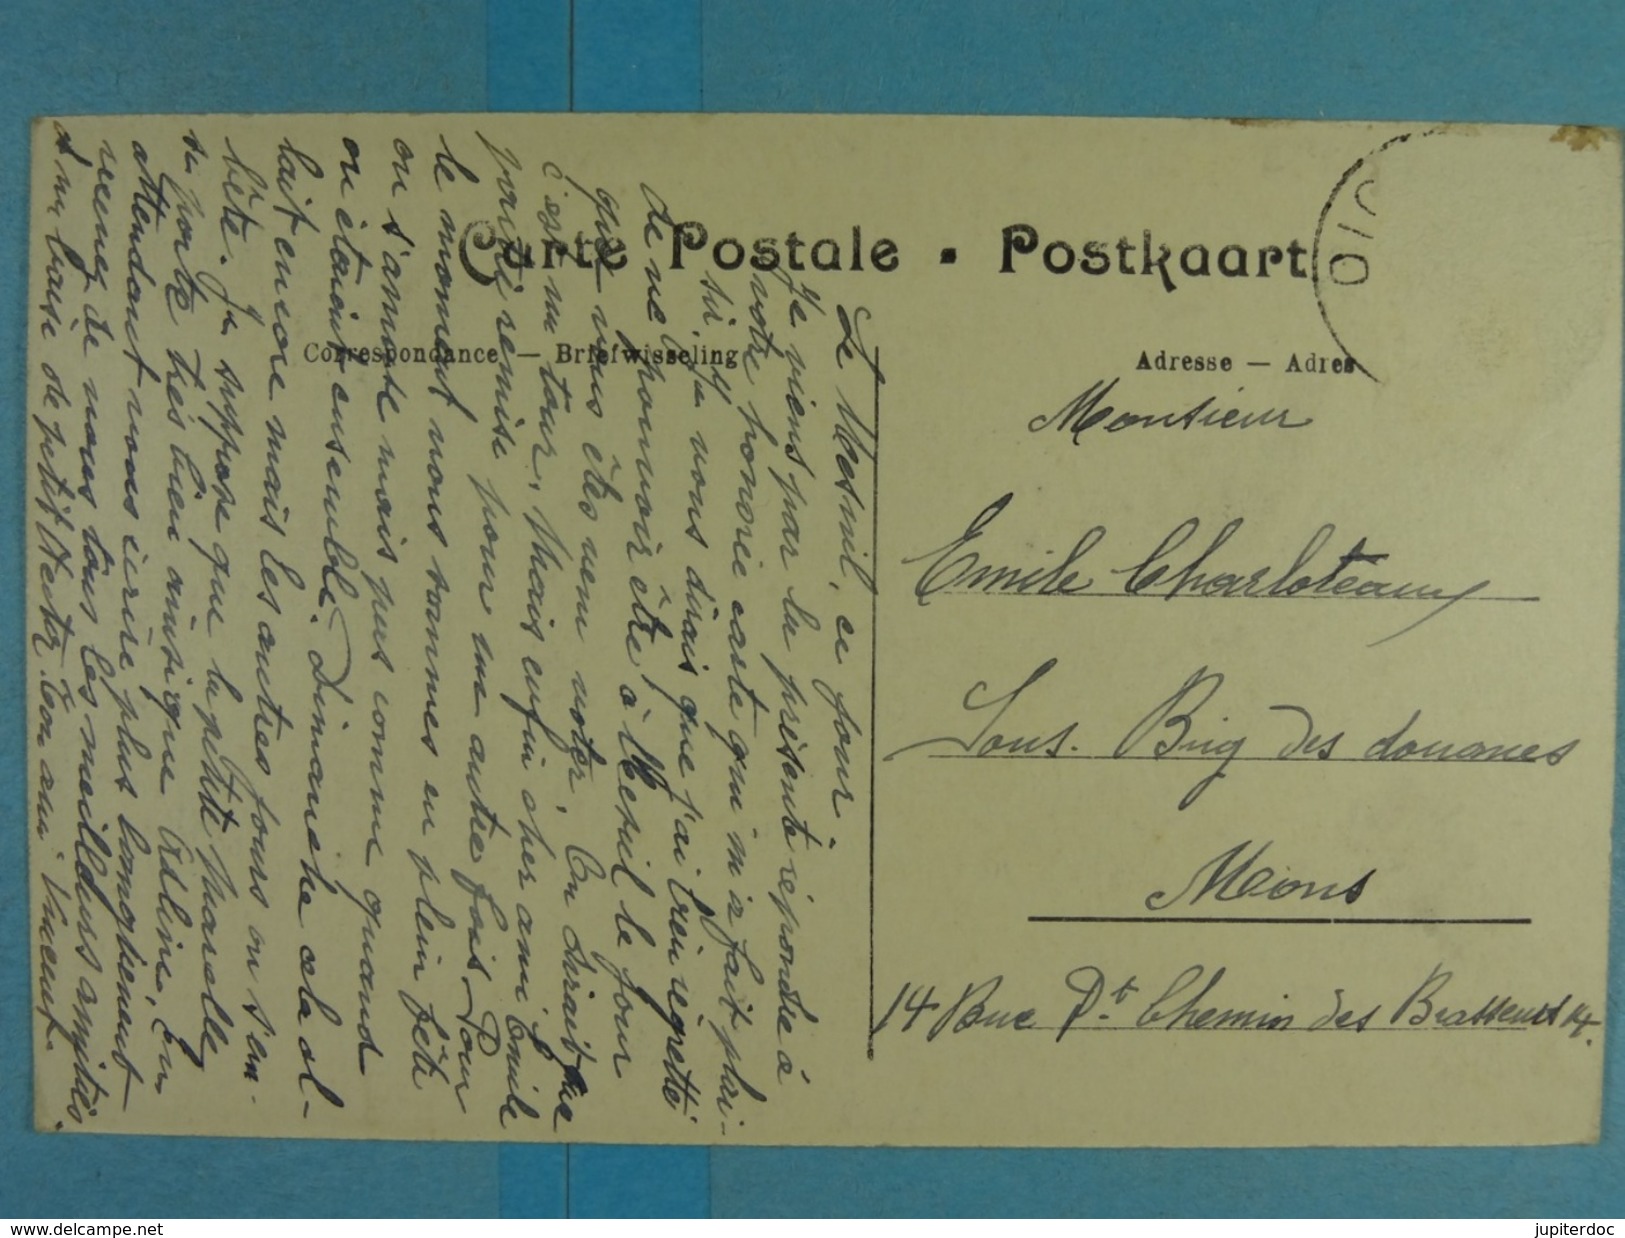 Carte Postale • Postkaart
Correspondance — Briefwisseling
Adresse — Adres
Le Mesnil, ce jour
Je viens par la présente répondre à
votre honorée carte qui m'a fait plai-
sir. Je vous dirais que j'ai bien regretté
de ne pouvoir être à Mesnil le jour
que vous êtes venu voter. On dirait que
c'est un tour. Mais enfin cher ami Emile
partie remise pour une autre fois. Pour
le moment nous sommes en plein fête
on s'amuse mais pas comme quand
on était ensemble. Dimanche cela al-
lait encore mais les autres jours on s'em-
bête. Je suppose que la petite Marcelle
se porte très bien ainsi que Adline. En
attendant vous écrire plus longuement
recevez de nous tous les meilleurs amitiés
et un baise de petit Nestor. Ton ami Vincent.
Monsieur
Emile Charloteaux
Sous. Brig des douanes
Mons
14 Rue Dt Chemin des Brasseurs 14.
delcampe.net
jupiterdoc